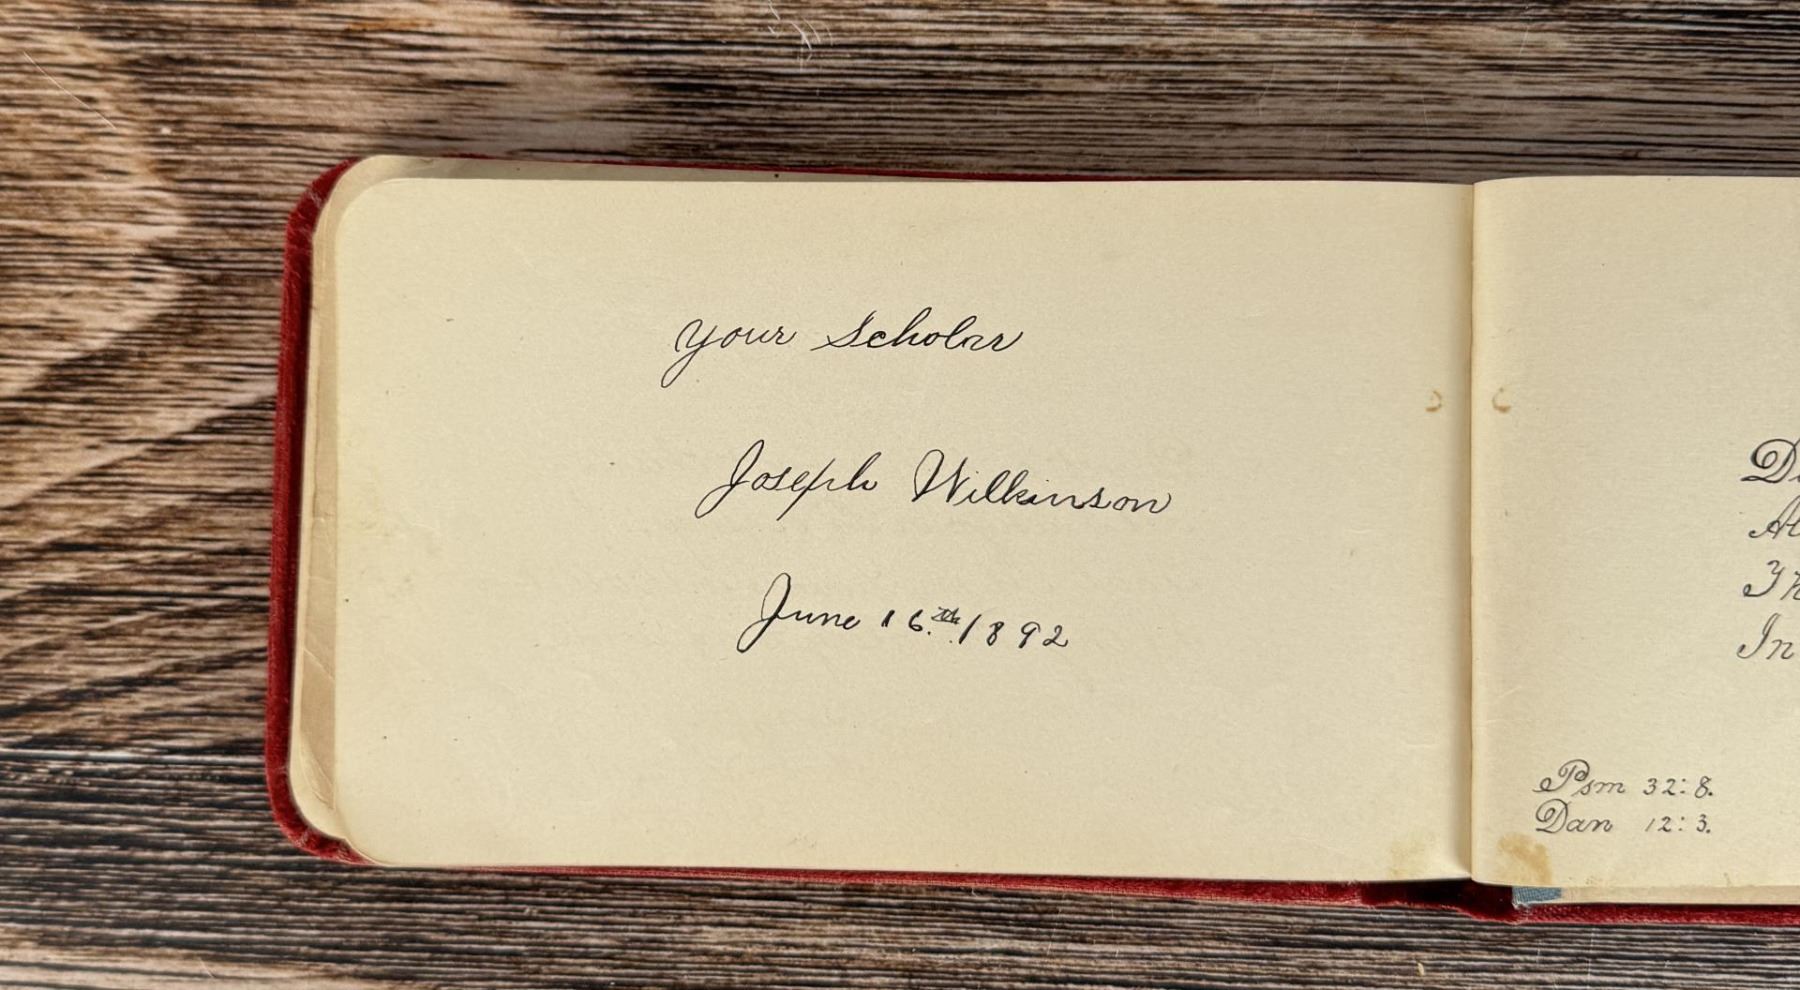 your Scholar
Joseph Wilkinson
June 16.th/1892
In
Psm 32:8.
Dan 12:3.